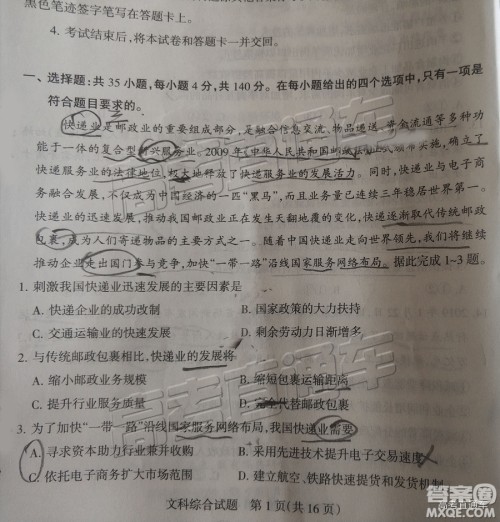 黑色笔迹签字笔写在答题卡上。
4. 考试结束后，将本试卷和答题卡一并交回。
一、选择题：共 35 小题，每小题 4 分，共 140 分。在每小题给出的四个选项中，只有一项是
符合题目要求的。
快递业是邮政业的重要组成部分，是融合信息交流、物品递送、资金流通等多种功
能于一体的复合型新兴服务业。2009 年《中华人民共和国邮政法》正式颁布实施，确立了
快递服务业的法律地位，极大地释放了快递服务业的发展活力。快递业与电子商
务融合发展，不仅成为中国经济的一匹“黑马”，而且业务量已经连续三年稳居世界第一。
快递业的迅速发展，推动我国邮政业正在发生翻天覆地的变化，快递逐渐取代传统邮政
包裹，成为人们寄递物品的主要方式之一。随着中国快递业走向世界领先，我们将继续
推动企业走出国门参与竞争，加快“一带一路”沿线国家服务网络布局。据此完成 1~3 题。
1. 刺激我国快递业迅速发展的主要因素是
A. 快递企业的成功改制
B. 国家政策的大力扶持
C. 交通运输业的快速发展
D. 剩余劳动力日渐增多
2. 与传统邮政包裹相比，快递业的发展将
A. 缩小邮政业务规模
B. 缩短包裹运输距离
C. 提升行业服务质量
D. 完全代替邮政包裹
3. 为了加快“一带一路”沿线国家服务网络布局，我国快递业需要
A. 寻求资本助力行业兼并收购
B. 采用先进技术提升电子交易速
C. 依托电子商务扩大市场范围
D. 航空、铁路快速提货和发货机制
文科综合试题 第 1 页（共 16 页）
高考直通车
答案圈
MXQE.COM